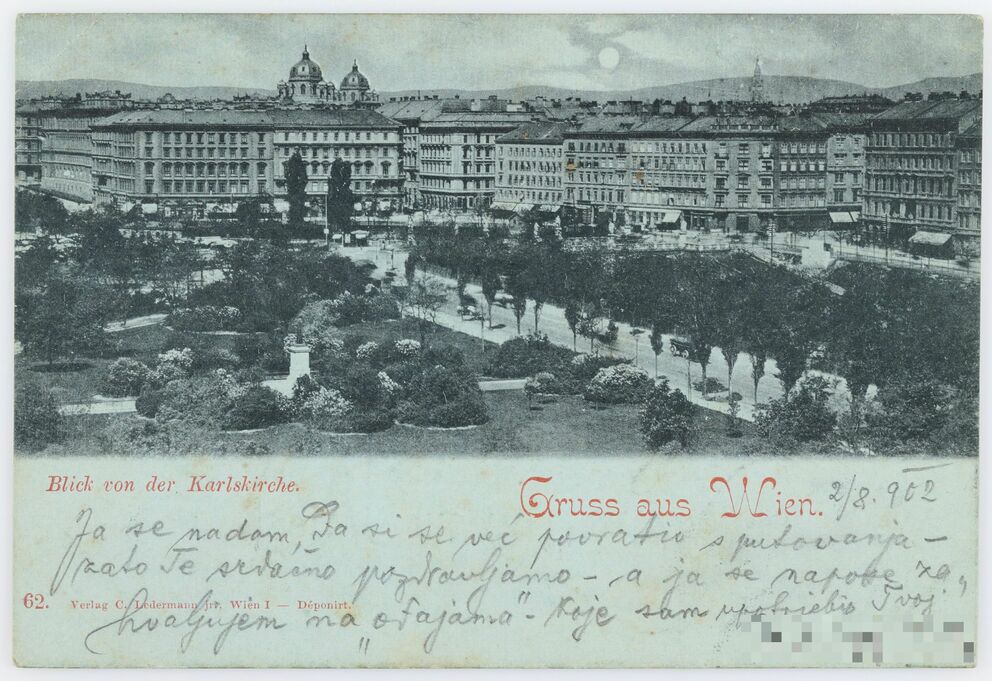 Blick von der Karlskirche.
Gruss aus Wien. 2/8. 902
Ja se nadam, Da si se već povratio s putovanja –
zato Te srdačno pozdravljamo – a ja se napose za„
62. Verlag C. Ledermann jr., Wien I — Déponirt.
hvaljujem na „ođajama“ koje sam upotriebio Tvoj.